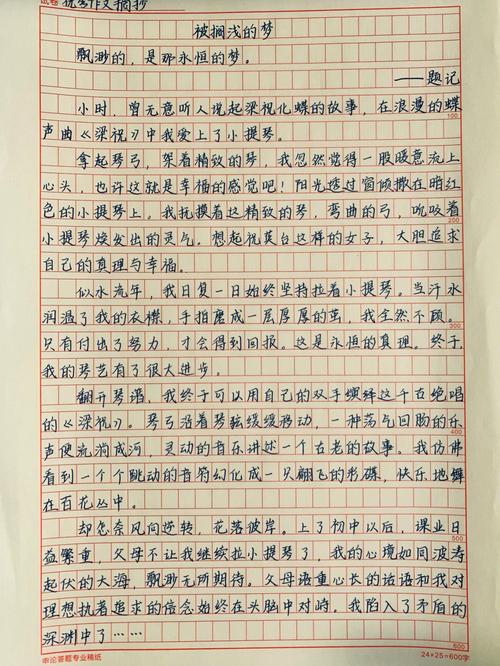 试卷 优秀作文摘抄
被搁浅的梦
飘渺的，是那永恒的梦。
——题记
小时，曾无意听人说起梁祝化蝶的故事，在浪漫的蝶
100
声曲《梁祝》中我爱上了小提琴。
拿起琴弓，架着精致的琴，我忽然觉得一股暖意流上
心头，也许这就是幸福的感觉吧！阳光透过窗倾撒在暗红
色的小提琴上。我抚摸着这精致的琴，弯曲的弓，吮咬着
200
小提琴焕发出的灵气。想起祝英台这样的女子，大胆追求
自己的真理与幸福。
似水流年，我日复一日始终坚持拉着小提琴。当汗水
润湿了我的衣襟，手指磨成一层厚厚的茧，我全然不顾。
300
只有付出了努力，才会得到回报。这是永恒的真理。终于，
我的琴艺有了很大进步。
翻开琴谱，我终于可以用自己的双手演绎这千古绝唱
的《梁祝》。琴弓沿着琴弦缓缓移动，一种荡气回肠的乐
400
声便流淌成河，灵动的音乐讲述一个古老的故事。我仿佛
看到一个个跳动的音符幻化成一只翩飞的彩碟，快乐地舞
在百花丛中。
却怎奈风向逆转，花落彼岸。上了初中以后，课业日
500
益繁重，父母不让我继续拉小提琴了，我的心境如同波涛
起伏的大海，飘渺无所期待。父母语重心长的话语和我对
理想执着追求的信念始终在头脑中对峙。我陷入了矛盾的
深渊中了……
600
申论答题专业稿纸
24×25=600字